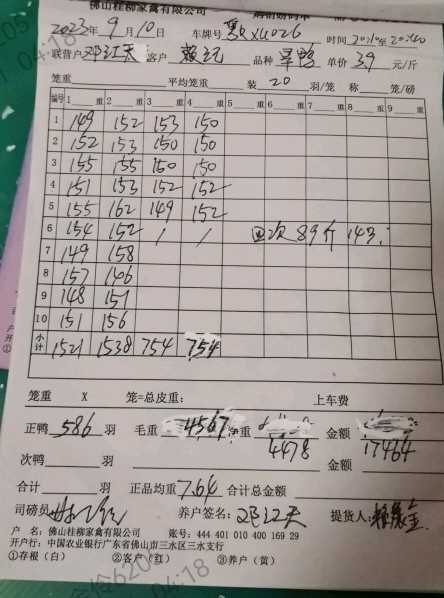 佛山桂柳家禽有限公司
2023年9月10日 车牌号 时间 20:10至20:40
联营户 邓江天 客户 品种 旱鸭 单价 3.9 元/斤
笼重 平均笼重 装 20 羽/笼 称 笼/磅
编号 1 重 2 重 3 重 4 重 5 重 6 重 7 重 8 重 9 重
1 149 152 153 150
2 152 153 150 150
3 155 155 150 150
4 151 153 152 152
5 155 162 149 152
6 154 152 / / 回次 89斤 143
7 149 158
8 157 146
9 148 151
10 151 156
小计 1521 1538 754 754
笼重 X 笼=总皮重: 上车费
正鸭 586 羽 毛重 4567 净重 4478 金额 17464
次鸭 羽 金额
合计 羽 正品均重 7.64 合计总金额
司磅员 养户签名: 邓江天 提货人:
户 名: 佛山桂柳家禽有限公司 账号: 444 401 010 400 169 29
开户行: 中国农业银行广东省佛山市三水区三水支行
①存根(白) ②客户(红) ③养户(黄)
04:18